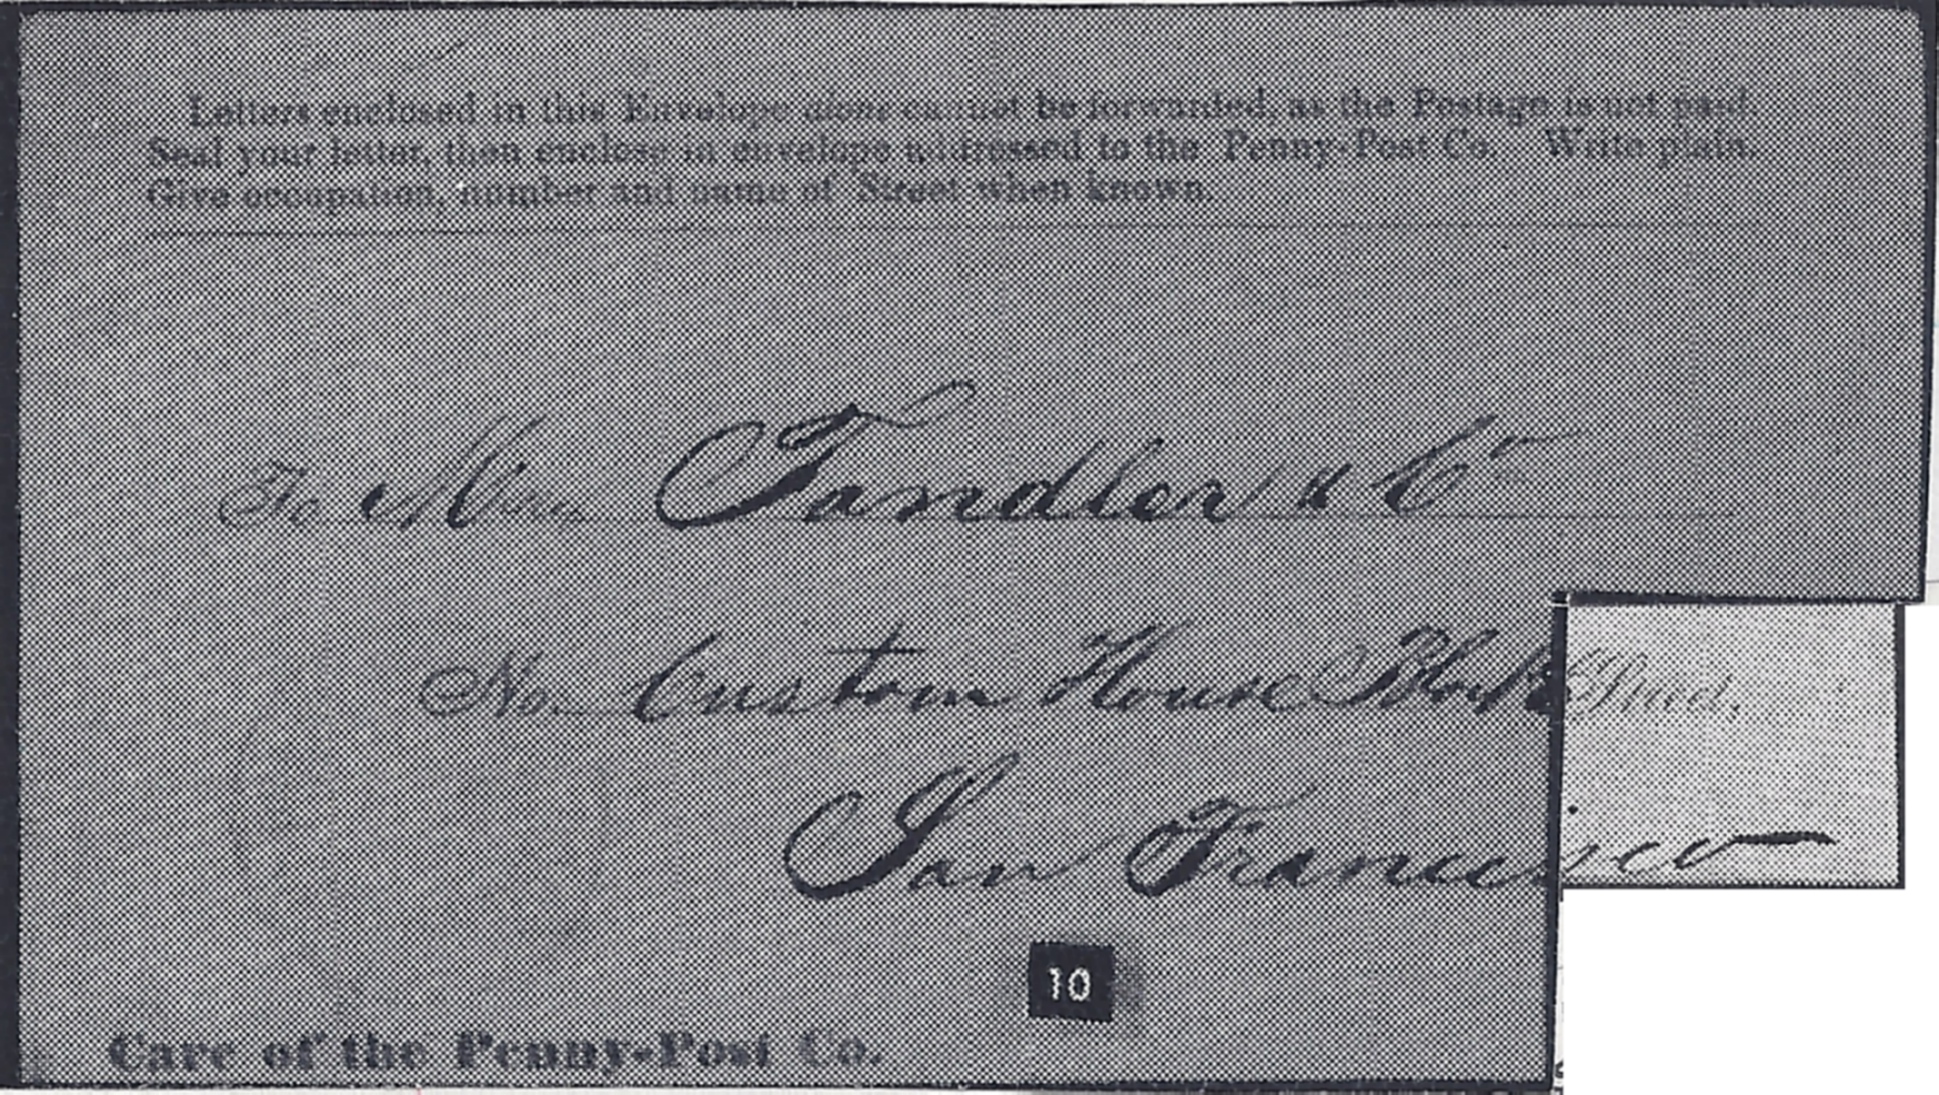 Letters enclosed in this Envelope alone cannot be forwarded, as the Postage is not paid.
Seal your letter, then enclose in envelope addressed to the Penny-Post Co. Write plain.
Give occupation, number and name of Street when known.
To Mess. Tandler & Co
No. Custom House Block Street,
San Francisco
10
Care of the Penny-Post Co.